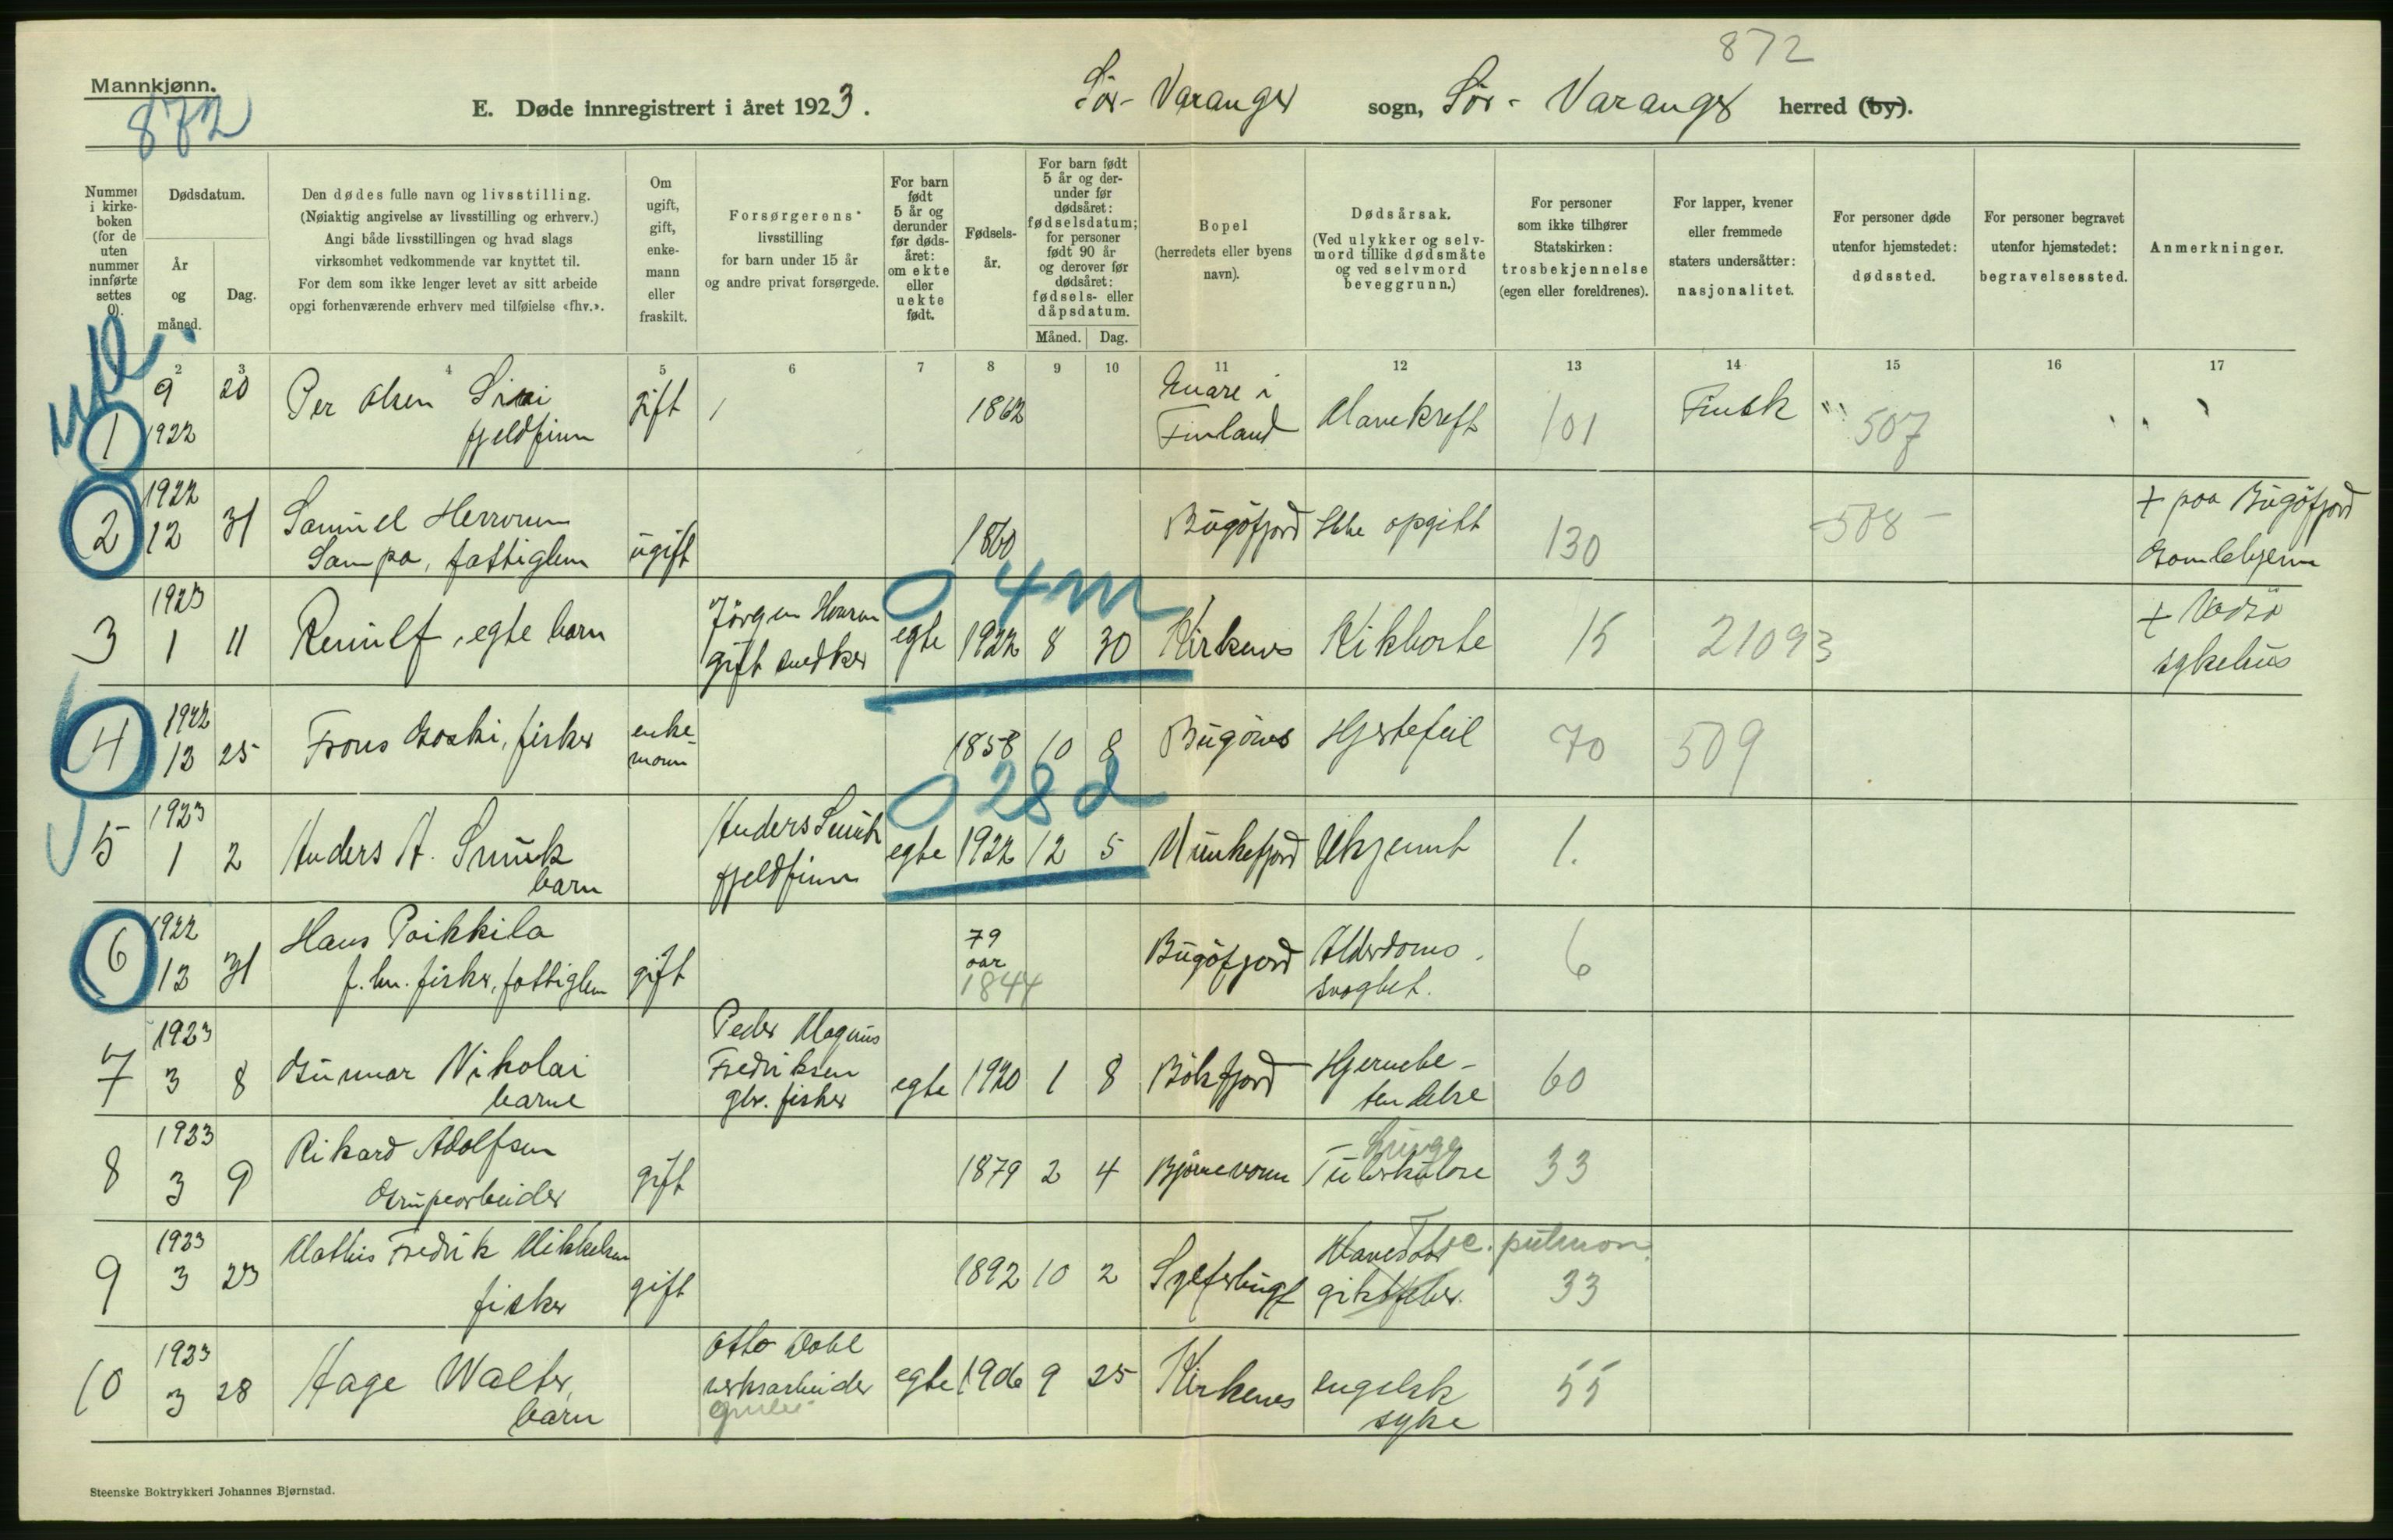 872
Mannkjønn.
872
E. Døde innregistrert i året 1923. Sör-Varanger sogn, Sör-Varanger herred (by).
Nummer i kirkeboken (for de uten nummer innførte settes 0).
Dødsdatum.
År og måned.
Dag.
Den dødes fulle navn og livsstilling.
(Nøiaktig angivelse av livsstilling og erhverv.)
Angi både livsstillingen og hvad slags
virksomhet vedkommende var knyttet til.
For dem som ikke lenger levet av sitt arbeide
opgi forhenværende erhverv med tilføielse «fhv.».
Om ugift, gift, enkemann eller fraskilt.
Forsørgerens livsstilling
for barn under 15 år
og andre privat forsørgede.
For barn født 5 år og derunder før dødsåret: om ekte eller uekte født.
Fødselsår.
For barn født 5 år og derunder før dødsåret: fødselsdatum; for personer født 90 år og derover før dødsåret: fødsels- eller dåpsdatum.
Måned.
Dag.
Bopel
(herredets eller byens navn).
Dødsårsak.
(Ved ulykker og selvmord tillike dødsmåte og ved selvmord beveggrunn.)
For personer som ikke tilhører Statskirken: trosbekjennelse (egen eller foreldrenes).
For lapper, kvener eller fremmede staters undersåtter: nasjonalitet.
For personer døde utenfor hjemstedet: dødssted.
For personer begravet utenfor hjemstedet: begravelsessted.
Anmerkninger.
2 3 4 5 6 7 8 9 10 11 12 13 14 15 16 17
1 9 1922 20 Per Olsen fjeldfinn gift 1862 Enare i Finland Mavekreft 101 Finsk 507
2 1922 12 31 Samuel Sampa, fattiglem ugift 1860 Bugöfjord Ikke opgitt 130 508 + paa Bugöfjord Gamlehjem
0 4 m
3 1923 1 11 egte barn Jörgen gift snedker egte 1922 8 30 Kirkenes Kikhoste 15 21093 + Vadsö sykehus
4 1922 12 25 Frans fisker enkemann 1858 10 8 Bugönes Hjertefeil 70 509
0 28 d
5 1923 1 2 Anders A. Smuk barn Anders Smuk fjeldfinn egte 1922 12 5 Munkefjord Ukjennt 1.
6 1922 12 31 Hans Poikkila f. hv. fisker, fattiglem gift 79 aar 1844 Bugöfjord Alderdomssvaghet. 6
7 1923 3 8 Gunnar Nikolai barne Peder Magnus Fredriksen gbr. fisker egte 1920 1 8 Bökfjord Hjernebetendelse 60
8 1923 3 9 Rikard Adolfsen Grupearbeider gift 1879 2 4 Björnevann Lunge Tuberkulose 33
9 1923 3 23 Mathis Fredrik Mikkelsen fisker gift 1892 10 2 giktfeber. Tbc. pulmon. 33
10 1923 3 28 Aage Walter, barn Otto Dahl verksarbeider egte 1906 9 25 Kirkenes engelsk syke 55
Steenske Boktrykkeri Johannes Bjørnstad.